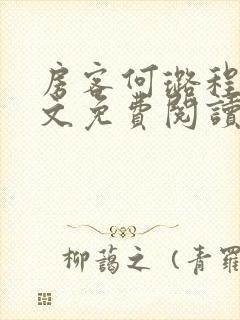 房客何璐程
文免費閱讀
柳藹之（青羅